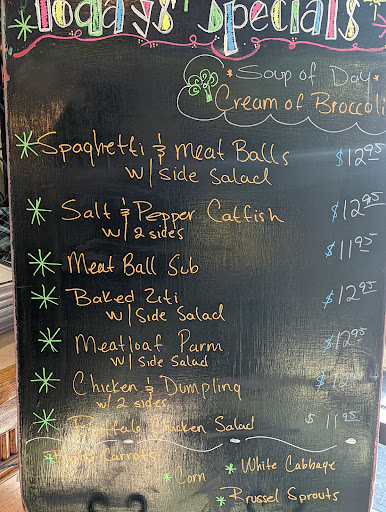 Todays' Specials
*Soup of Day*
Cream of Broccoli
*Spaghetti & Meat Balls $12.95
w/ Side Salad
* Salt & Pepper Catfish $12.95
w/ 2 sides
* Meat Ball Sub $11.95
* Baked Ziti $12.95
w/ Side Salad
* Meatloaf Parm $12.95
w/ Side Salad
* Chicken & Dumpling
w/ 2 sides
* Buffalo Chicken Salad $11.95
* Carrots
* Corn * White Cabbage
* Brussel Sprouts